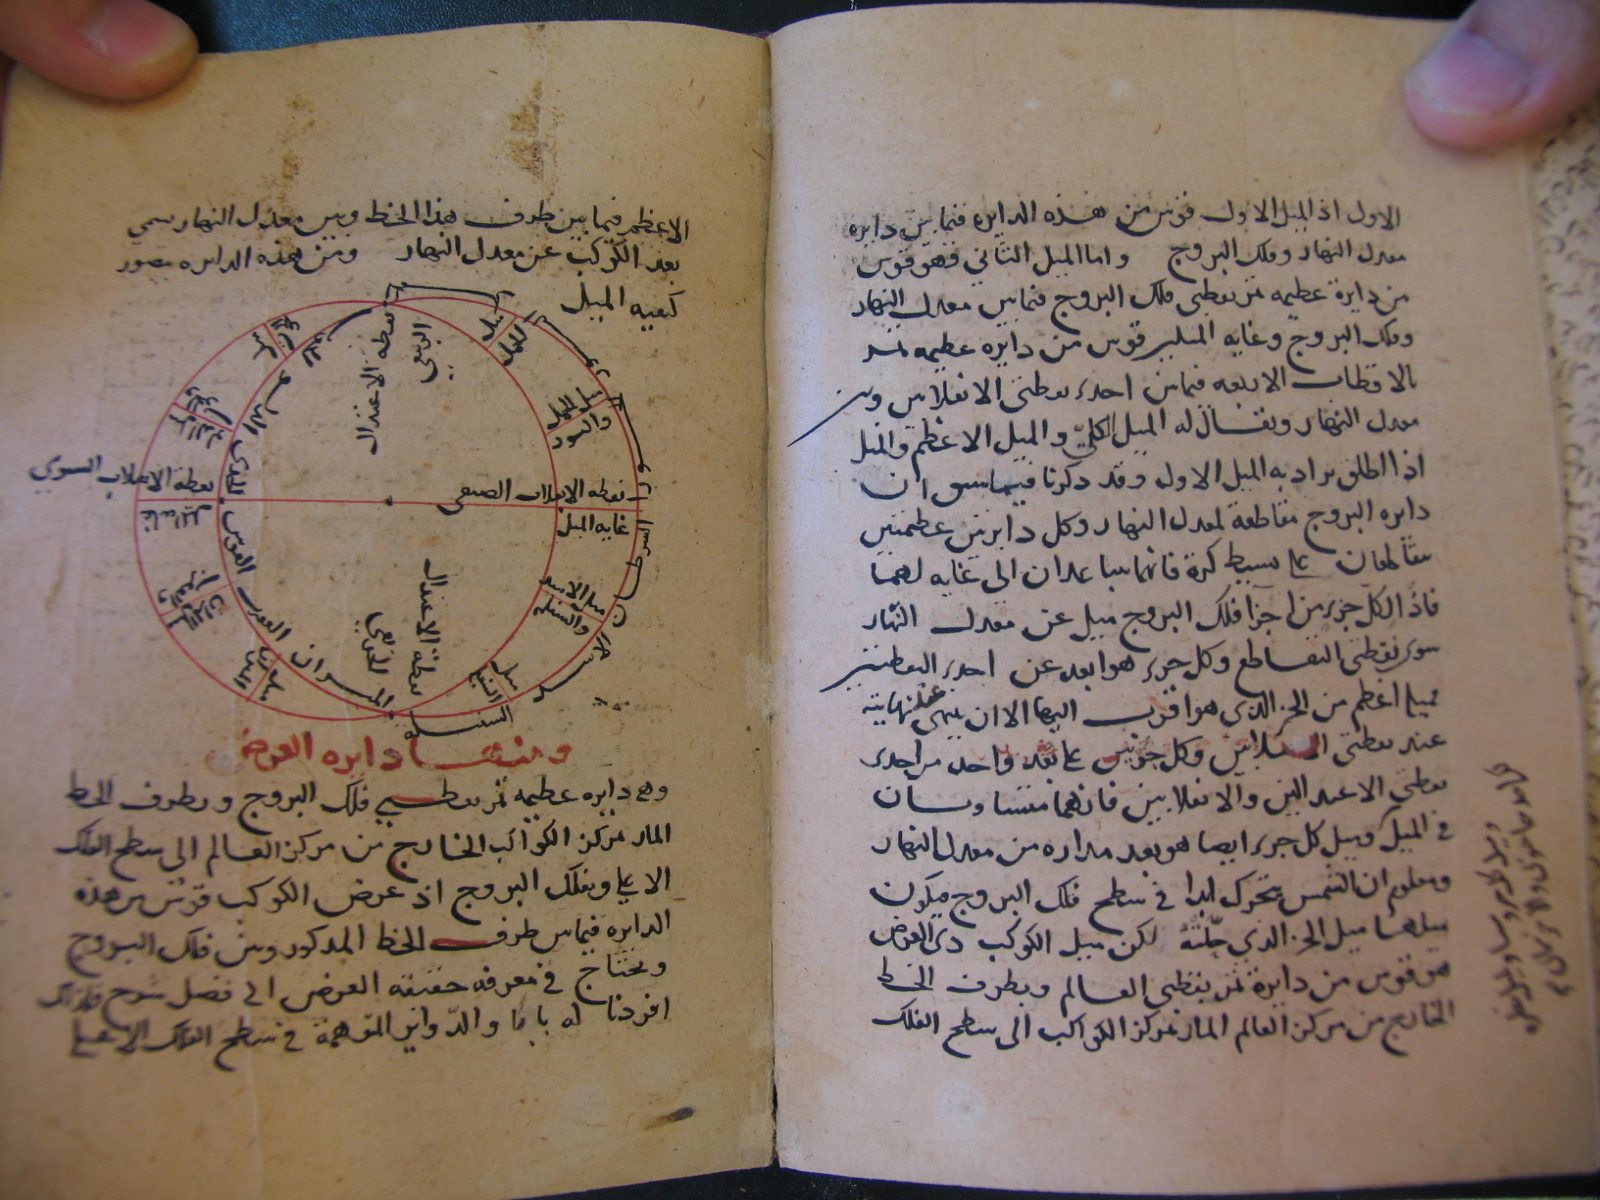 الاول اذ الميل الاول قوس من هذه الدايره فيما بين دايره
معدل النهار وفلك البروج واما الميل الثاني فهو قوس
من دايرة عظيمه تمر بقطبي فلك البروج فيما بين معدل النهار
وفلك البروج وغايه الميلين قوس من دايره عظيمه تمر
بالاقطاب الاربعه فيما بين احدى نقطتى الانقلابين وبين
معدل النهار ويقال له الميل الكلي والميل الاعظم والميل
اذا اطلق يراد به الميل الاول وقد ذكرنا فيما سبق ان
دايره البروج مقاطعة لمعدل النهار وكل دايرتين عظيمتين
متقاطعان على بسيط كرة فانهما يتباعدان الى غايه لهما
فاذا لكل جزء من اجزآ فلك البروج ميل عن معدل النهار
سوى نقطتى التقاطع وكل جزء هو ابعد عن احدى النقطتين
فميله اعظم من الجزء الذي هو اقرب اليها الا ان ينتهى عند نهايته
عند نقطتى الانقلابين وكل جزئين على بعد واحد من احدى
نقطتي الاعتدالين والانقلابين فانهما متساويان
في الميل وميل كل جزء ايضا هو بعد مداره من معدل النهار
ومعلوم ان الشمس تتحرك ابدا في سطح فلك البروج فيكون
ميلها ميل الجزء الذي حلّته لكن ميل الكوكب ذى العرض
هو قوس من دايرة تمر بقطبي العالم وبطرف الخط
الخارج من مركز العالم المار بمركز الكواكب الى سطح الفلك
الاعظم فيما بين طرف هذا الخط وبين معدل النهار يسمى
بعد الكوكب عن معدل النهار ومن هذه الدايره تصور
كيفيه الميل
نقطه الاعتدال
الربيعي
ميل
الحمل
ميل الحمل
والثور
نقطه الانقلاب الصيفي
غايه الميل
السرطان
ميل الاسد
والسنبله
ميل
السنبله
السنبله
نقطه الاعتدال
الخريفي
الميزان
العقرب
القوس
الجدى
الدلو
نقطة الانقلاب الشتوي
غايه الميل
ومنها دايره العرض
وهي دايره عظيمه تمر بقطبي فلك البروج وبطرف الخط
المار بمركز الكواكب الخارج من مركز العالم الى سطح الفلك
الاعلى وبفلك البروج اذ عرض الكوكب قوس من هذه
الدايره فيما بين طرف الخط المذكور وبين فلك البروج
ويحتاج في معرفه حقيقه العرض الى فضل شرح فلذلك
افردنا له بابا والدواير المتوهمة في سطح الفلك الاعلى